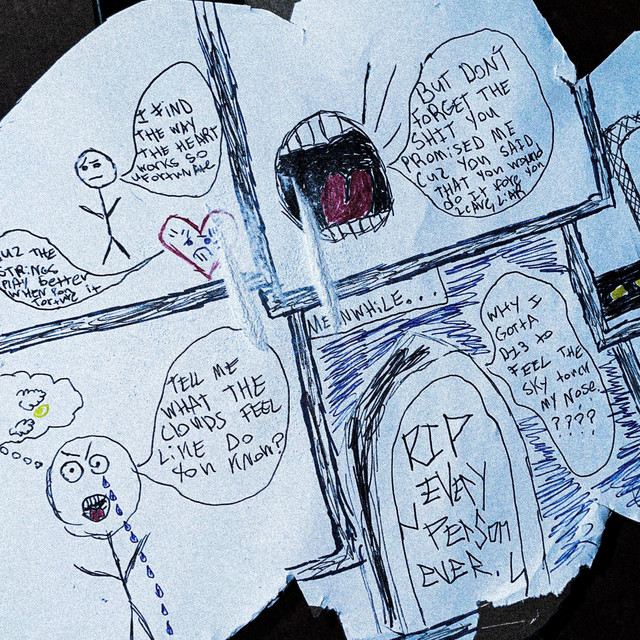 I FIND
THE WAY
THE HEART
WORKS SO
CUZ THE
STRINGS
PLAY better
WHEN YOU
torture it
BUT DON'T
FORGET THE
SHIT YOU
PROMISED ME
CUZ YOU SAID
THAT YOU WOULD
DO IT FORE YOU
TELL ME
WHAT THE
CLOUDS FEEL
LIKE DO
YOU KNOW?
MEANWHILE...
WHY I
GOTTA
DIE TO
FEEL THE
SKY touch
MY NOSE
????
RIP
EVERY
PERSON
EVER.